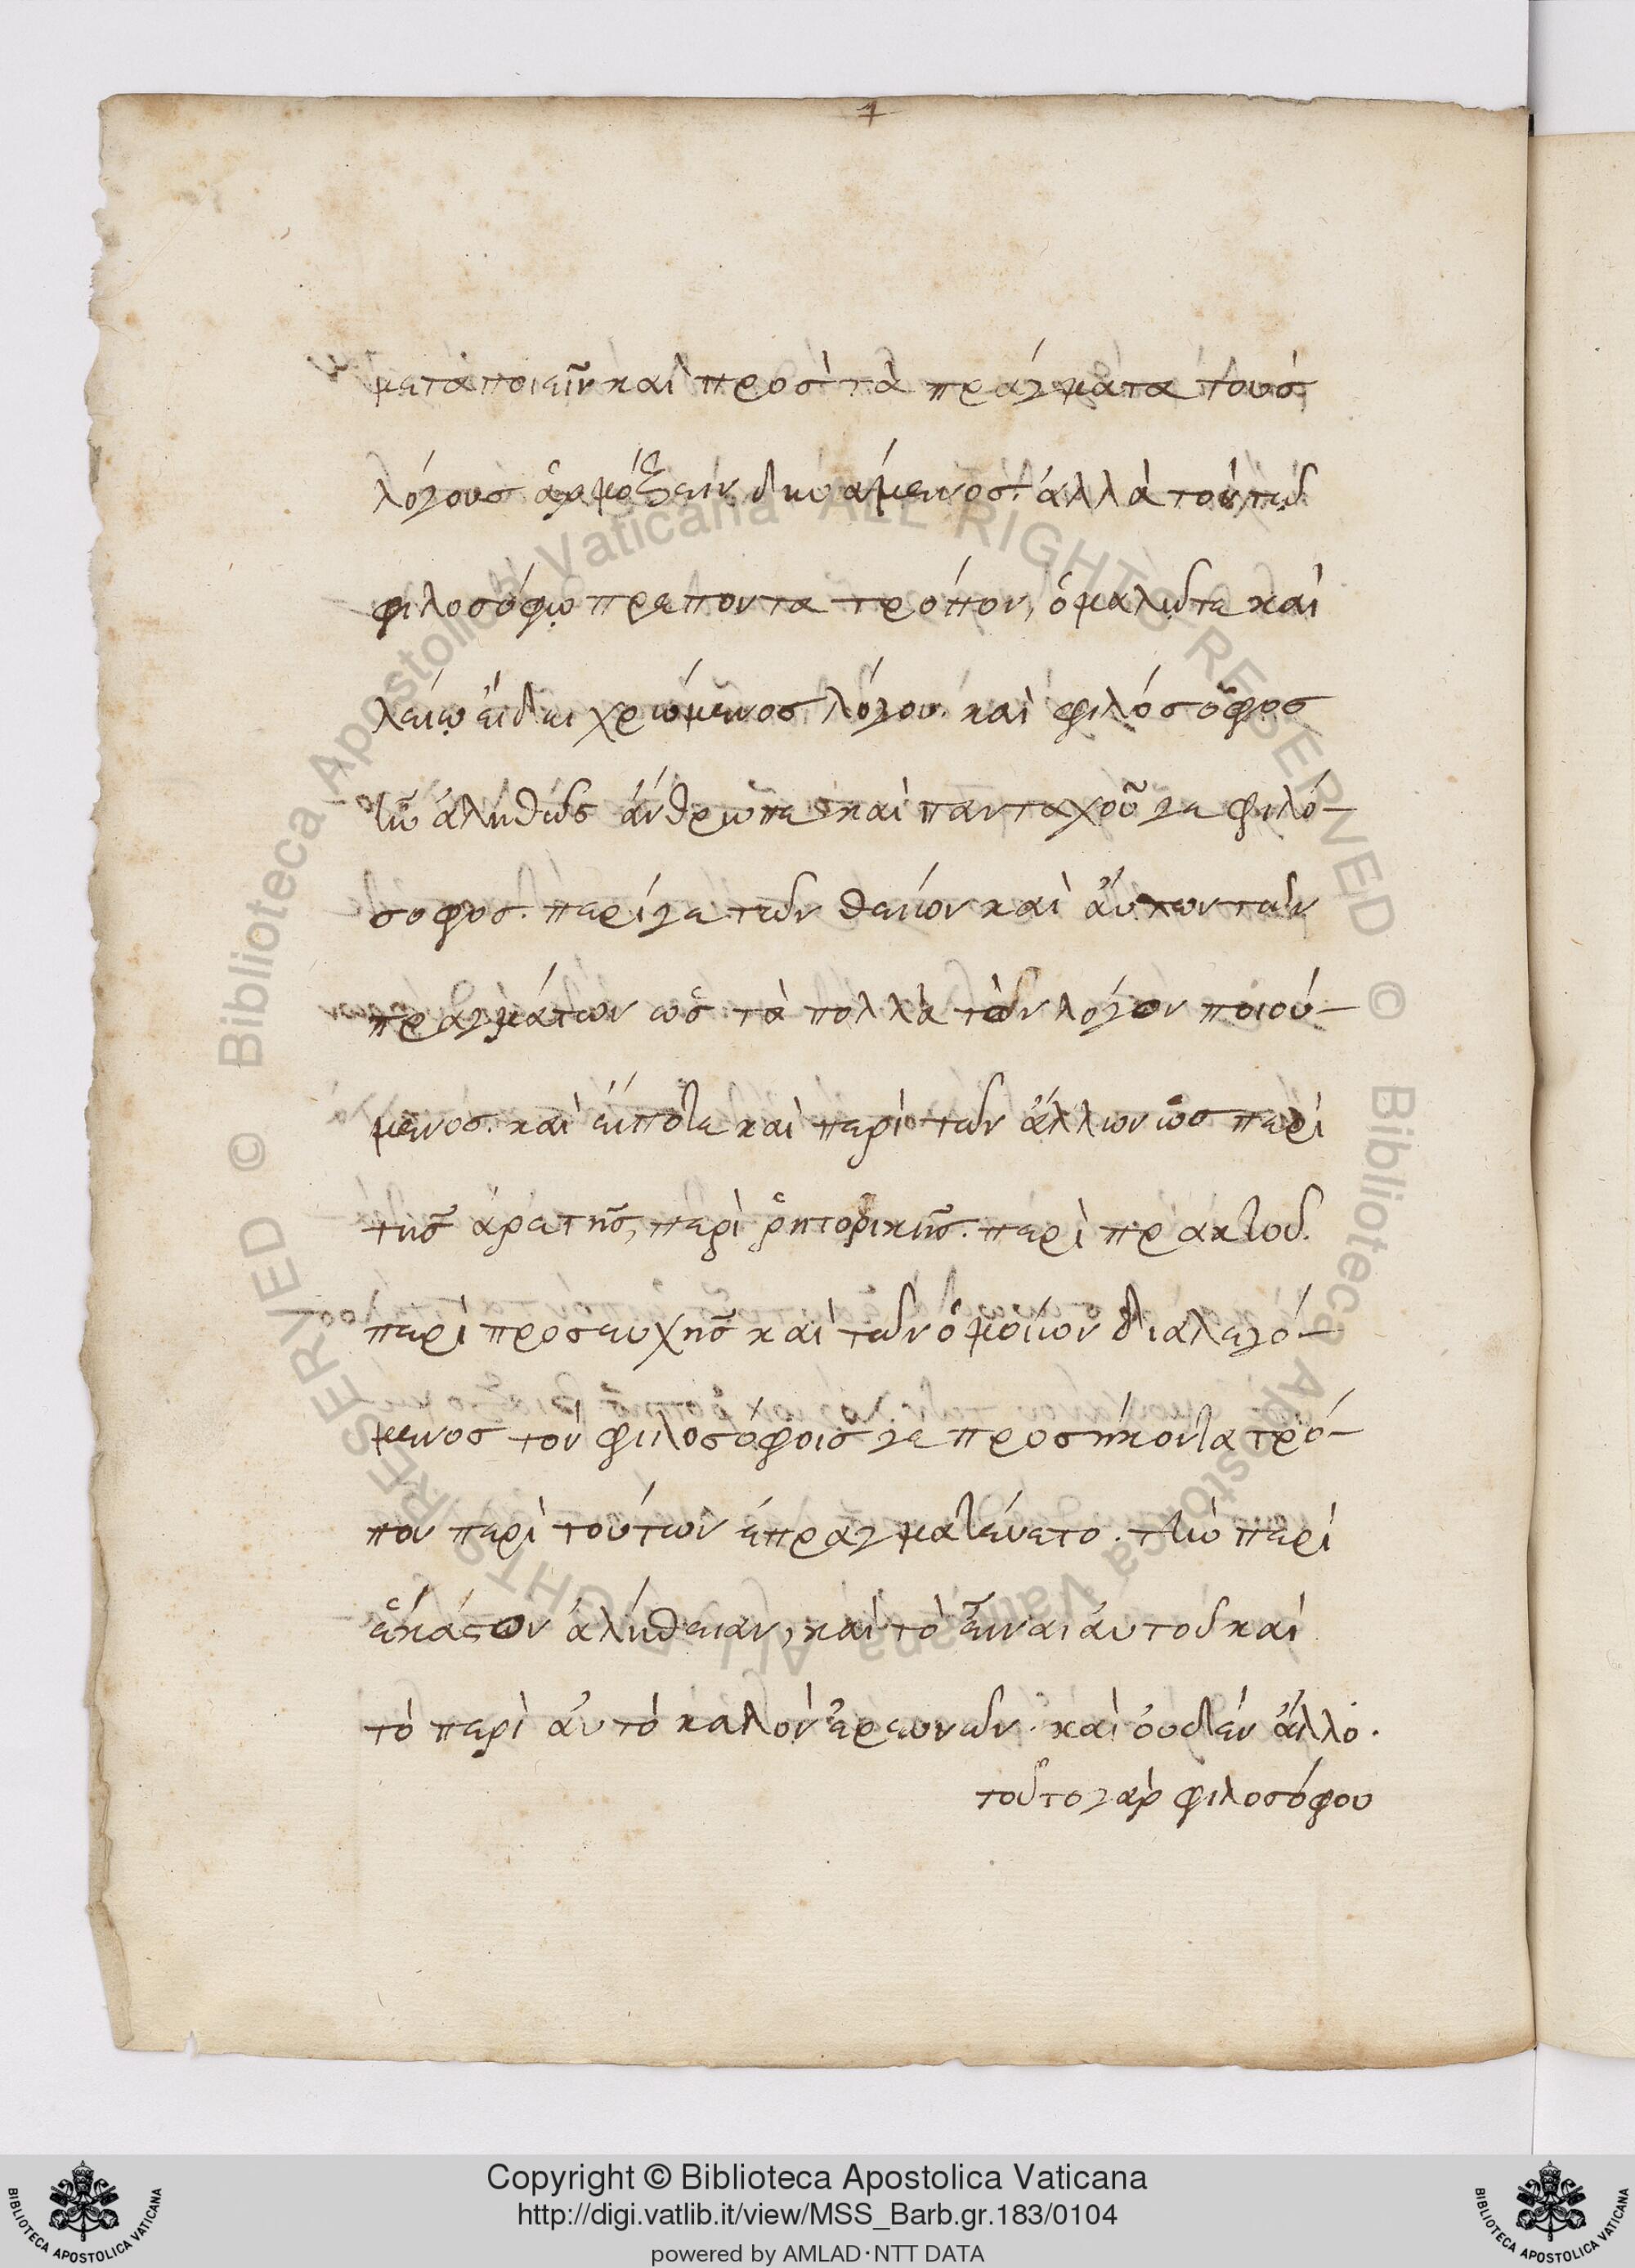 μεταποιεῖν καὶ πρὸς τὰ πράγματα τοὺς
λόγους ἁρμόζειν δυνάμενος. ἀλλὰ τὸν τῷ
φιλοσόφῳ πρέποντα τρόπον, ὁμαλῷ τε καὶ
λείῳ εἴδει χρώμενος λόγου. καὶ φιλόσοφος
ἦν ἀληθῶς ἄνθρωπε καὶ πανταχοῦ γε φιλό-
σοφος. περί γε τῶν θείων καὶ ὄντων τῶν
πραγμάτων ὡς τὰ πολλὰ τὸν λόγον ποιού-
μενος. καὶ εἴποτε καὶ περὶ τῶν ἄλλων ὡς περὶ
τῆς ἀρετῆς, περὶ ῥητορικῆς. περὶ πρακτοῦ.
περὶ προσευχῆς καὶ τῶν ὁμοίων διαλεγό-
μενος τὸν φιλοσόφοις γε προσήκοντα τρό-
πον περὶ τούτων ἐπραγματεύετο. τὴν περὶ
ἑκάστον ἀλήθειαν, καὶ τὸ εἶναι αὐτοῦ καὶ
τὸ περὶ αὐτὸ καλὸν ἐρευνῶν. καὶ οὐδὲν ἄλλο.
τοῦτο γὰρ φιλοσόφου
Copyright © Biblioteca Apostolica Vaticana
http://digi.vatlib.it/view/MSS_Barb.gr.183/0104
powered by AMLAD·NTT DATA
BIBLIOTECA APOSTOLICA VATICANA
BIBLIOTECA APOSTOLICA VATICANA
© Biblioteca Apostolica Vaticana ALL RIGHTS RESERVED © Biblioteca Apostolica Vaticana ALL RIGHTS RESERVED